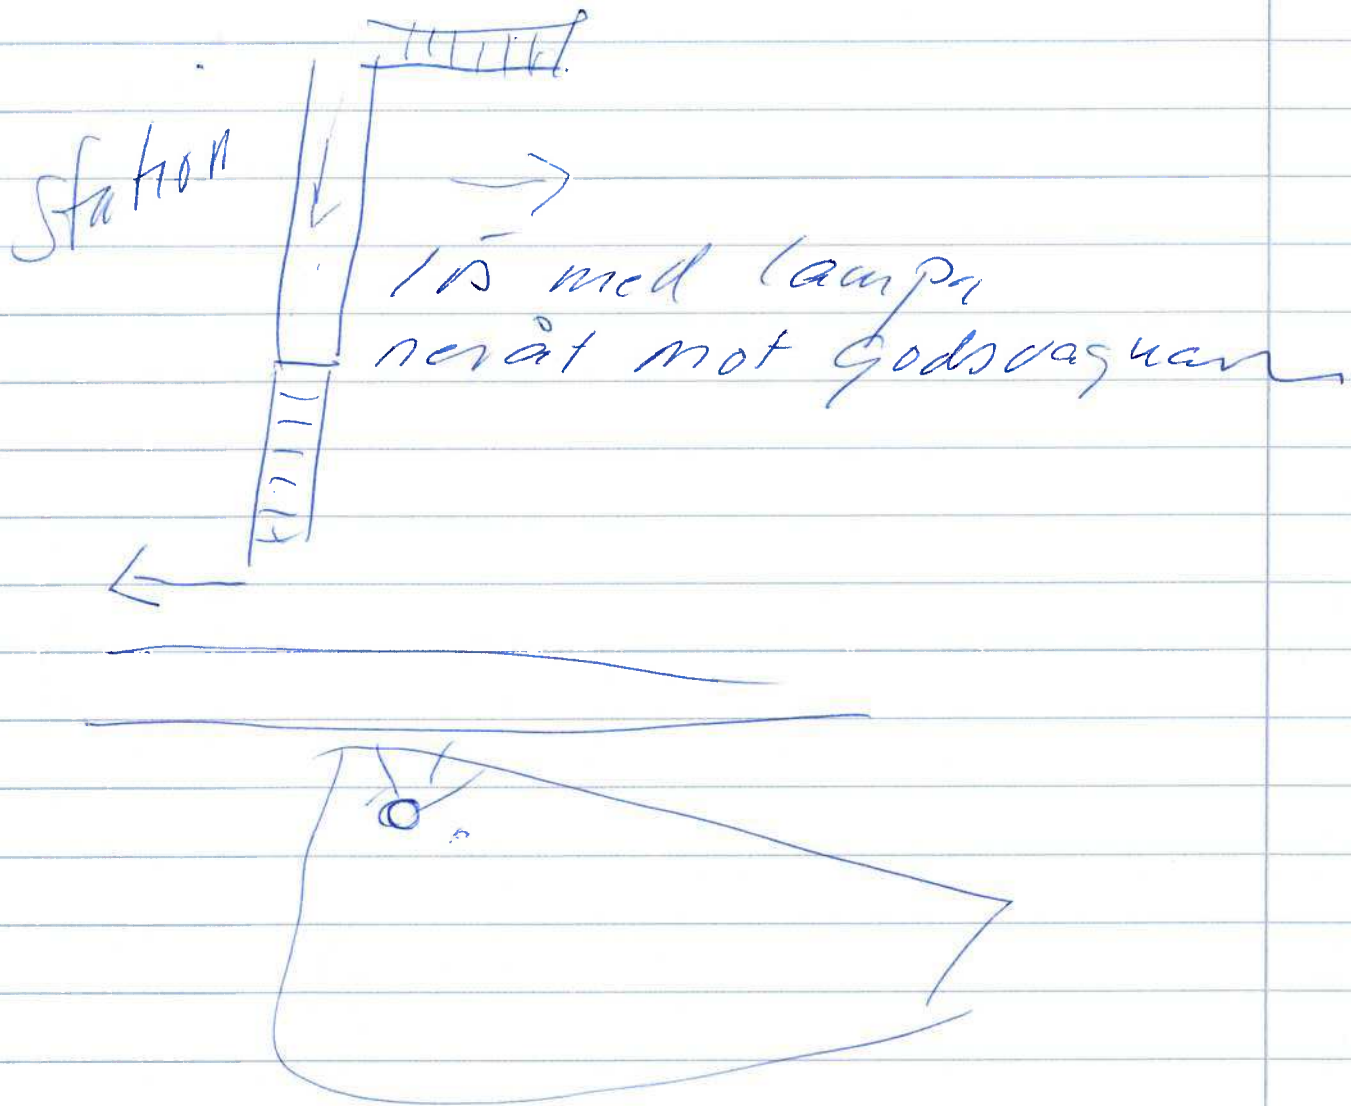 station
lös med lampa
neråt mot godsvagnar